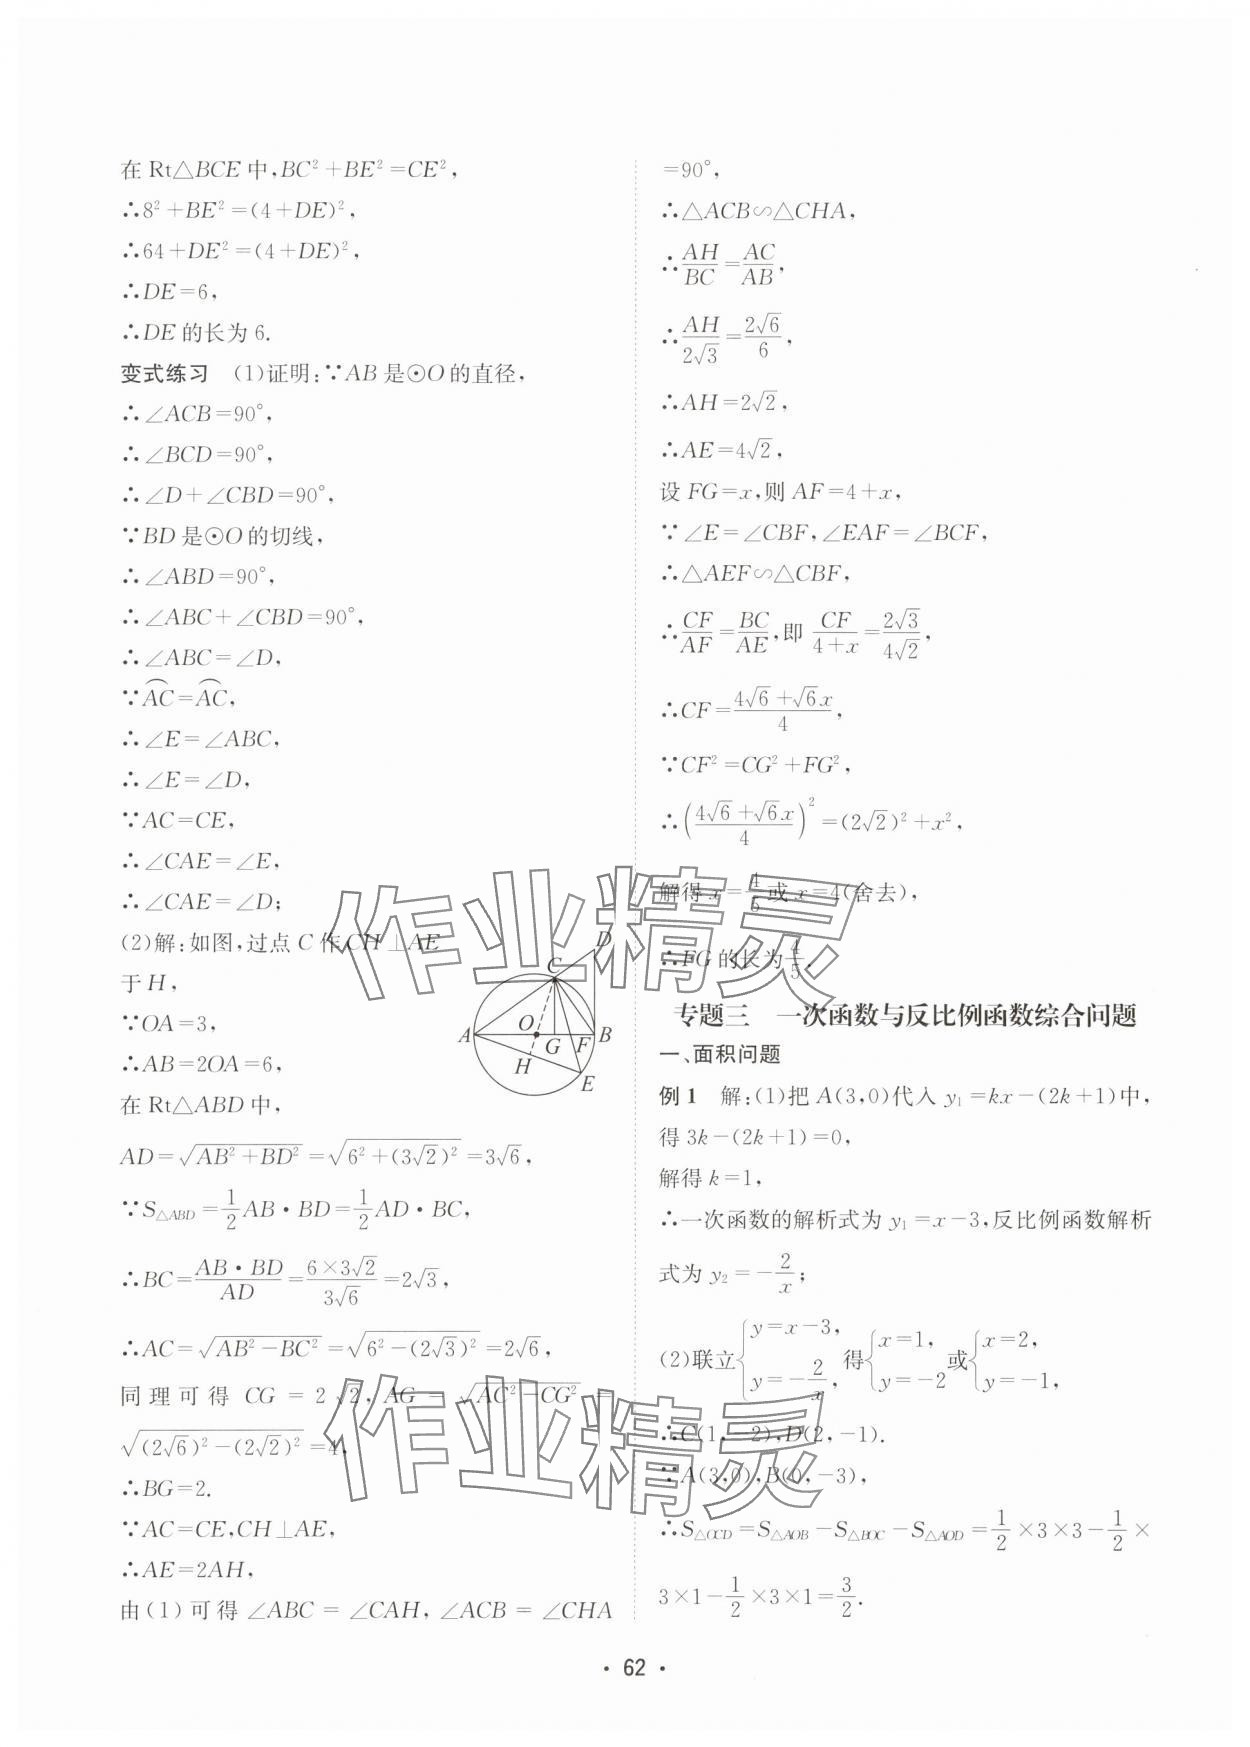 在 Rt△BCE 中,BC²+BE²=CE²,
∴8²+BE²=(4+DE)²,
∴64+DE²=(4+DE)²,
∴DE=6,
∴DE 的长为 6.
变式练习 (1)证明:∵AB 是⊙O 的直径,
∴∠ACB=90°,
∴∠BCD=90°,
∴∠D+∠CBD=90°,
∵BD 是⊙O 的切线,
∴∠ABD=90°,
∴∠ABC+∠CBD=90°,
∴∠ABC=∠D,
∵⌒AC=⌒AC,
∴∠E=∠ABC,
∴∠E=∠D,
∵AC=CE,
∴∠CAE=∠E,
∴∠CAE=∠D;
(2)解:如图,过点 C 作 CH⊥AE
于 H,
∵OA=3,
∴AB=2OA=6,
在 Rt△ABD 中,
AD=√(AB²+BD²)=√(6²+(3√2)²)=3√6,
∵S△ABD=1/2 AB·BD=1/2 AD·BC,
∴BC=(AB·BD)/AD=(6×3√2)/(3√6)=2√3,
∴AC=√(AB²-BC²)=√(6²-(2√3)²)=2√6,
同理可得 CG=2√2,AG=√(AC²-CG²)=
√((2√6)²-(2√2)²)=4,
∴BG=2.
∵AC=CE,CH⊥AE,
∴AE=2AH,
由(1)可得∠ABC=∠CAH,∠ACB=∠CHA
D
C
A
O
G
F
B
H
E
=90°,
∴△ACB∽△CHA,
∴AH/BC=AC/AB,
∴AH/(2√3)=2√6/6,
∴AH=2√2,
∴AE=4√2,
设 FG=x,则 AF=4+x,
∵∠E=∠CBF,∠EAF=∠BCF,
∴△AEF∽△CBF,
∴CF/AF=BC/AE,即 CF/(4+x)=2√3/(4√2),
∴CF=(4√6+√6x)/4,
∵CF²=CG²+FG²,
∴((4√6+√6x)/4)²=(2√2)²+x²,
解得 x=4/5或 x=4(舍去),
∴FG 的长为4/5.
专题三 一次函数与反比例函数综合问题
一、面积问题
例 1 解:(1)把 A(3,0)代入 y₁=kx-(2k+1)中,
得 3k-(2k+1)=0,
解得 k=1,
∴一次函数的解析式为 y₁=x-3,反比例函数解析
式为 y₂=-2/x;
(2)联立{y=x-3, y=-2/x, 得{x=1, y=-2 或{x=2, y=-1,
∴C(1,-2),D(2,-1).
∵A(3,0),B(0,-3),
∴S△OCD=S△AOB-S△BOC-S△AOD=1/2×3×3-1/2×
3×1-1/2×3×1=3/2.
作业精灵
作业精灵
· 62 ·